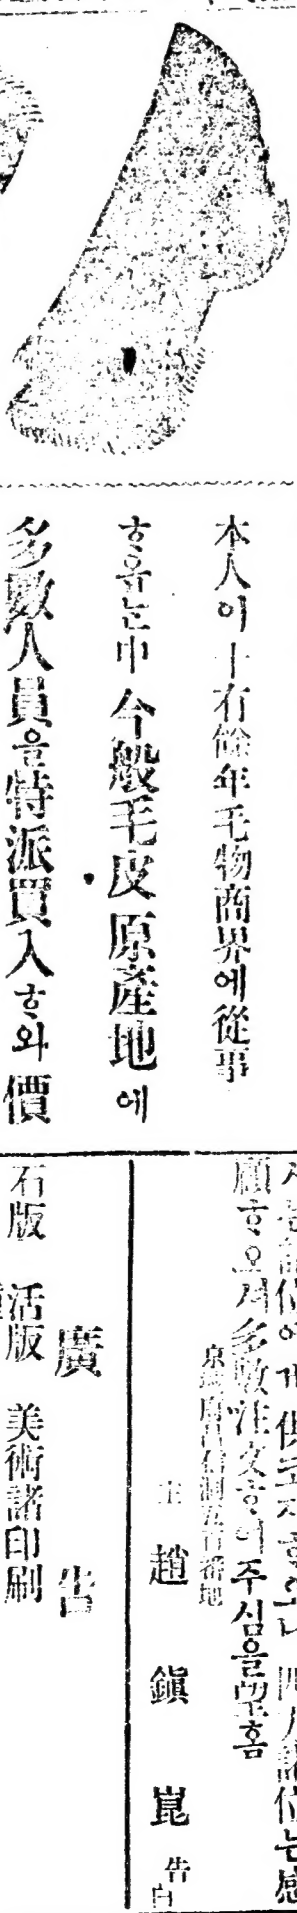 本人이 十有餘年毛物商界에從事
ᄒᆞ옵ᄂᆞᆫ中 今般毛皮原產地에
多數人員을特派買入ᄒᆞ와 價
四方諸位는感
顧ᄒᆞ오셔多數注文ᄒᆞ여주심을望홈
五百番地
主 趙 鎭 崑 告白
廣 告
石版 活版 美術諸印刷